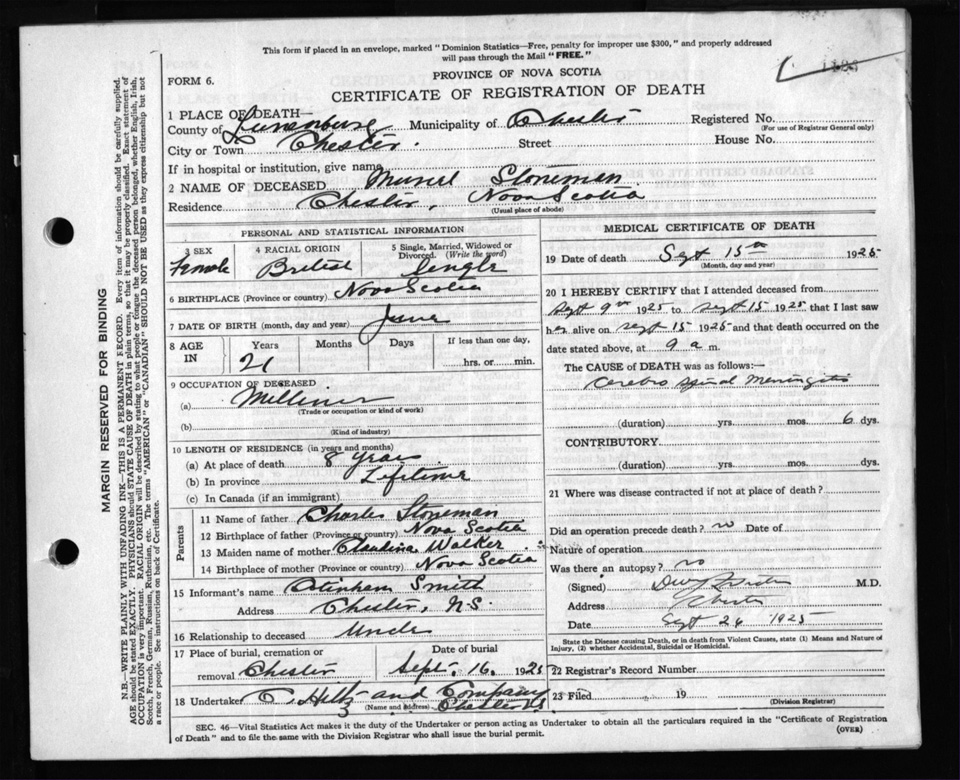 This form if placed in an envelope, marked "Dominion Statistics—Free, penalty for improper use $300," and properly addressed
will pass through the Mail "FREE."
FORM 6.
PROVINCE OF NOVA SCOTIA
CERTIFICATE OF REGISTRATION OF DEATH
1 PLACE OF DEATH—
County of Lunenburg Municipality of Chester Registered No.
(For use of Registrar General only)
City or Town Chester. Street House No.
If in hospital or institution, give name
2 NAME OF DECEASED Muriel Stoneman
Residence Chester, Nova Scotia
(Usual place of abode)
PERSONAL AND STATISTICAL INFORMATION
3 SEX Female
4 RACIAL ORIGIN British
5 Single, Married, Widowed or
Divorced. (Write the word) Single
6 BIRTHPLACE (Province or country) Nova Scotia
7 DATE OF BIRTH (month, day and year) June
8 AGE IN Years 21 Months Days If less than one day,
hrs. or min.
9 OCCUPATION OF DECEASED
(a) Milliner
(Trade or occupation or kind of work)
(b)
(Kind of industry)
10 LENGTH OF RESIDENCE (in years and months)
(a) At place of death 8 years
(b) In province Lifetime
(c) In Canada (if an immigrant)
Parents
11 Name of father Charles Stoneman
12 Birthplace of father (Province or country) Nova Scotia
13 Maiden name of mother Claudina Walker
14 Birthplace of mother (Province or country) Nova Scotia
15 Informant's name Smith
Address Chester, N.S.
16 Relationship to deceased Uncle
17 Place of burial, cremation or
removal Chester
Date of burial
Sept. 16, 1925
18 Undertaker C. Hiltz and Company
(Name and address) Chester NS
MEDICAL CERTIFICATE OF DEATH
19 Date of death Sept 15th 1925
(Month, day and year)
20 I HEREBY CERTIFY that I attended deceased from
Sept 9th 1925 to Sept 15 1925 that I last saw
her alive on Sept 15 1925 and that death occurred on the
date stated above, at 9 a m.
The CAUSE of DEATH was as follows:—
Cerebro Spinal Meningitis
(duration) yrs. mos. 6 dys.
CONTRIBUTORY
(duration) yrs. mos. dys.
21 Where was disease contracted if not at place of death?
Did an operation precede death? no Date of
Nature of operation
Was there an autopsy? no
(Signed) M.D.
Address Chester
Date Sept 26 1925
State the Disease causing Death, or in death from Violent Causes, state (1) Means and Nature of
Injury, (2) whether Accidental, Suicidal or Homicidal.
22 Registrar's Record Number
23 Filed 19
(Division Registrar)
SEC. 46—Vital Statistics Act makes it the duty of the Undertaker or person acting as Undertaker to obtain all the particulars required in the "Certificate of Registration
of Death" and to file the same with the Division Registrar who shall issue the burial permit.
(OVER)
MARGIN RESERVED FOR BINDING
N.B.—WRITE PLAINLY WITH UNFADING INK—THIS IS A PERMANENT RECORD. Every item of information should be carefully supplied.
AGE should be stated EXACTLY. PHYSICIANS should STATE CAUSE OF DEATH in plain terms, so that it may be properly classified. Exact statement of
OCCUPATION is very important. RACIAL ORIGIN will be described by stating to what people or race the deceased person belonged, whether English, Irish,
Scotch, French, German, Russian, Ruthenian, etc. The terms "AMERICAN" or "CANADIAN" SHOULD NOT BE USED as they express citizenship but not
a race or people. See instructions on back of Certificate.